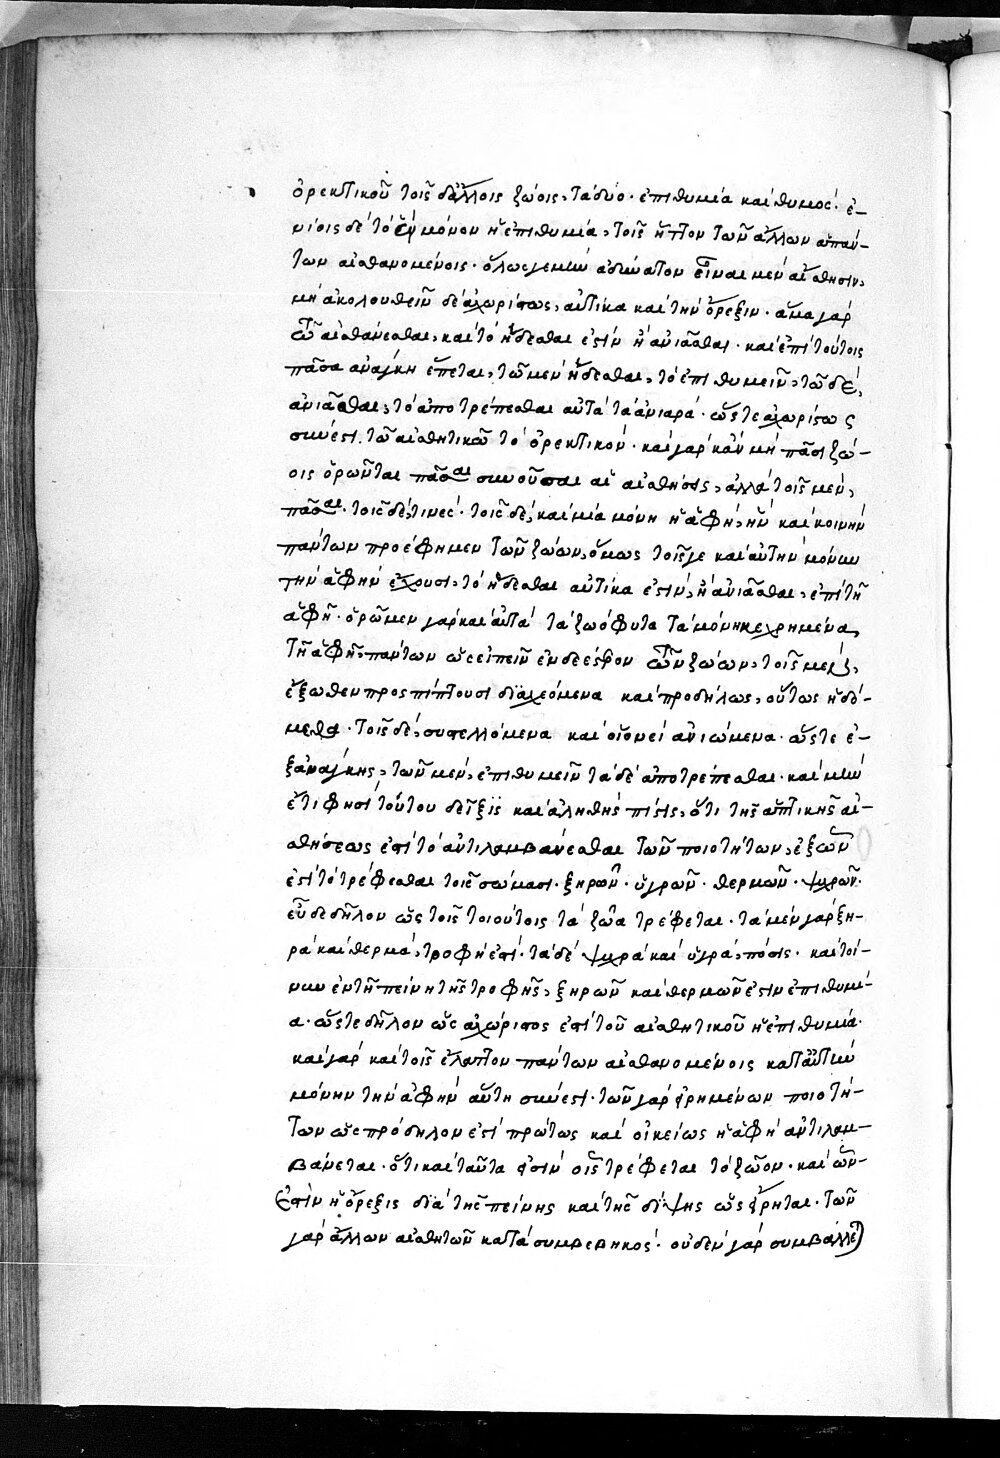 ὀρεκτικοῦ τοῖς δ' ἄλλοις ζώοις, τὰ δύο· ἐπιθυμία καὶ θυμός· ἐ-
νίοις δὲ τὸ ἓν μόνον ἡ ἐπιθυμία, τοῖς ἧττον τῶν ἄλλων ἁπάν-
των αἰσθανομένοις· ὅλως γε μὴν ἀδύνατον εἶναι μὲν αἴσθησιν,
μὴ ἀκολουθεῖν δὲ ἀχωρίστως, αὐτίκα καὶ τὴν ὄρεξιν· ἅμα γὰρ
τῶ αἰσθάνεσθαι, καὶ τὸ ἥδεσθαι ἐστὶν ἢ ἀνιᾶσθαι· καὶ ἐπὶ τούτοις
πᾶσα ἀνάγκη ἕπεται, τῶ μὲν ἥδεσθαι, τὸ ἐπιθυμεῖν, τῶ δὲ,
ἀνιᾶσθαι, τὸ ἀποτρέπεσθαι αὐτὰ τὰ ἀνιαρά· ὥστε ἀχωρίστως
σύνεστι τῶ αἰσθητικῶ τὸ ὀρεκτικόν· καὶ γὰρ κἂν μὴ πᾶσι ζώ-
οις ὁρῶνται πᾶσαι συνοῦσαι αἱ αἰσθήσεις, ἀλλὰ τοῖς μὲν,
πᾶσαι· τοῖς δὲ, τινές· τοῖς δὲ, καὶ μία μόνη ἡ ἁφή, ἣν καὶ κοινὴν
πάντων προέφημεν τῶν ζώων, ὅμως τοῖς γε καὶ αὐτὴν μόνην
τὴν ἁφὴν ἔχουσι, τὸ ἥδεσθαι αὐτίκα ἐστὶν, ἢ ἀνιᾶσθαι, ἐπὶ τῇ
ἁφῇ· ὁρῶμεν γὰρ καὶ αὐτὰ τὰ ζωόφυτα τὰ μόνη κεχρημένα,
τῇ ἁφῇ, πάντων ὡς εἰπεῖν ἐνδεέστερον τῶν ζώων, τοῖς μὲν,
ἔξωθεν προσπίπτουσι διαχεόμενα καὶ προδήλως, οὕτως ἡδό-
μενα· τοῖς δὲ, συστελλόμενα καὶ οἱονεὶ ἀνιώμενα· ὥστε ἐ-
ξανάγκης, τῶν μὲν, ἐπιθυμεῖν τὰ δὲ ἀποτρέπεσθαι· καὶ μὴν
ἔτι φησὶ τούτου δεῖξις καὶ ἀληθὴς πίστις, ὅτι τῆς ἁπτικῆς αἰ-
σθήσεως ἐστὶ τὸ ἀντιλαμβάνεσθαι τῶν ποιοτήτων, ἐξ ὧν
ἐστὶ τὸ τρέφεσθαι τοῖς σώμασι· ξηρῶν· ὑγρῶν· θερμῶν· ψυχρῶν·
εὔδεδηλον ὡς τοῖς τοιούτοις τὰ ζῶα τρέφεται· τὰ μὲν γὰρ ξη-
ρὰ καὶ θερμὰ, τροφή ἐστι· τὰ δὲ ψυχρὰ καὶ ὑγρὰ, πόσις· καὶ τοί-
νυν ἐν τῇ πείνῃ τῆς τροφῆς, ξηρῶν καὶ θερμῶν ἐστὶν ἐπιθυμί-
α· ὥστε δῆλον ὡς ἀχώριστος ἐστὶ τοῦ αἰσθητικοῦ ἡ ἐπιθυμία·
καὶ γὰρ καὶ τοῖς ἔλαττον πάντων αἰσθανομένοις κατ' αὐτὴν
μόνην τὴν ἁφὴν αὕτη σύνεστι· τῶν γὰρ εἰρημένων ποιοτή-
των ὡς πρόδηλον ἐστὶ πρώτως καὶ οἰκείως ἡ ἁφὴ ἀντιλαμ-
βάνεται· ὅτι καὶ ταῦτα ἐστὶν οἷς τρέφεται τὸ ζῶον· καὶ ὧν
ἐστὶν ἡ ὄρεξις διὰ τῆς πείνης καὶ τῆς δίψης ὡς εἴρηται· τῶν
γὰρ ἄλλων αἰσθητῶν κατὰ συμβεβηκός· οὐδὲν γὰρ συμβάλλε